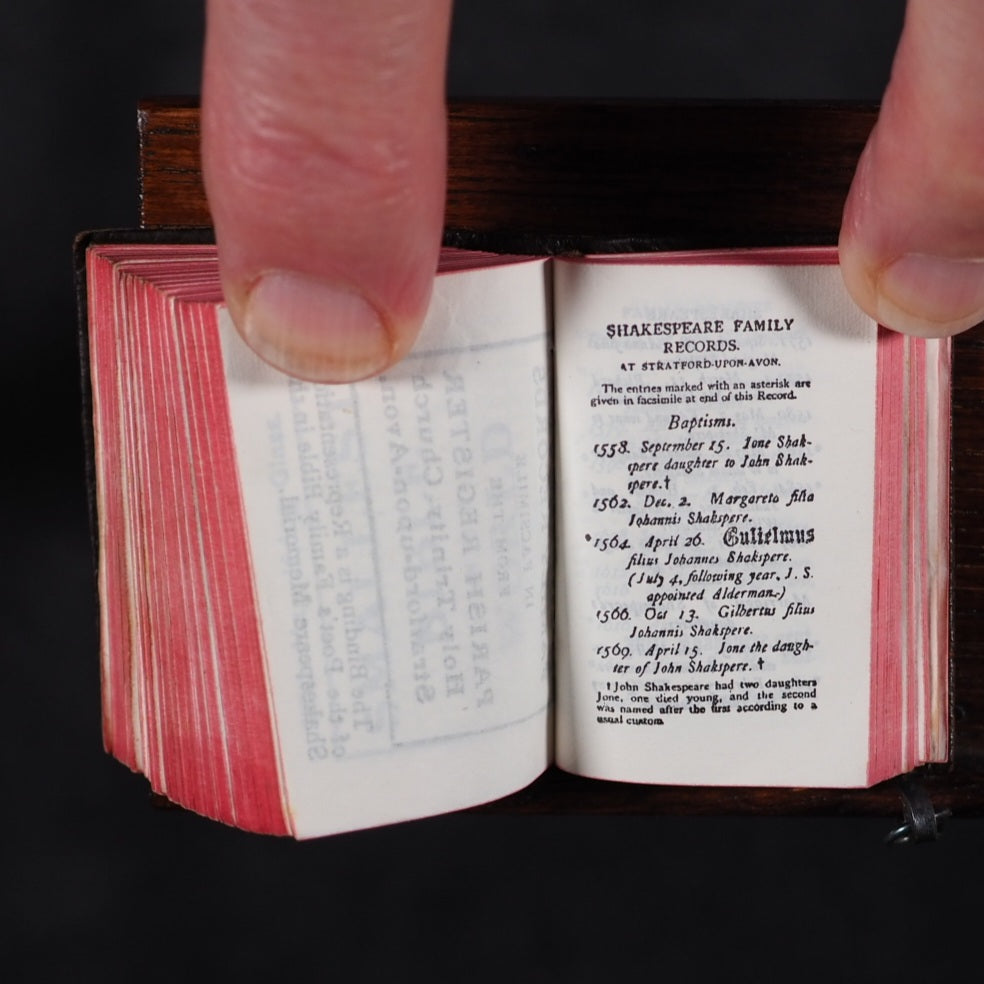 SHAKESPEARE FAMILY
RECORDS.
AT STRATFORD-UPON-AVON.
The entries marked with an asterisk are
given in facsimile at end of this Record.
Baptisms.
1558. September 15. Ione Shak-
spere daughter to John Shak-
spere.†
1562. Dec. 2. Margareta filia
Johannis Shakspere.
*1564. April 26. Gulielmus
filius Johannes Shakspere.
(July 4, following year, J. S.
appointed Alderman.)
1566. Oct 13. Gilbertus filius
Johannis Shakspere.
1569. April 15. Ione the daugh-
ter of John Shakspere. †
† John Shakespeare had two daughters
Jone, one died young, and the second
was named after the first according to a
usual custom